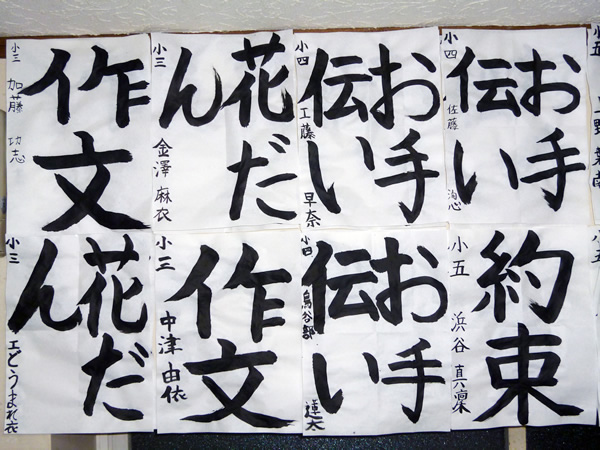 作文
小三
加藤
功志
花だ
ん
小三
金澤
麻衣
お手
伝い
小四
工藤
早奈
お手
伝い
小四
佐藤
小五
上野
花だ
ん
小三
作文
小三
中津
由依
お手
伝い
小四
蓮太
約束
小五
浜谷
真凜
小五